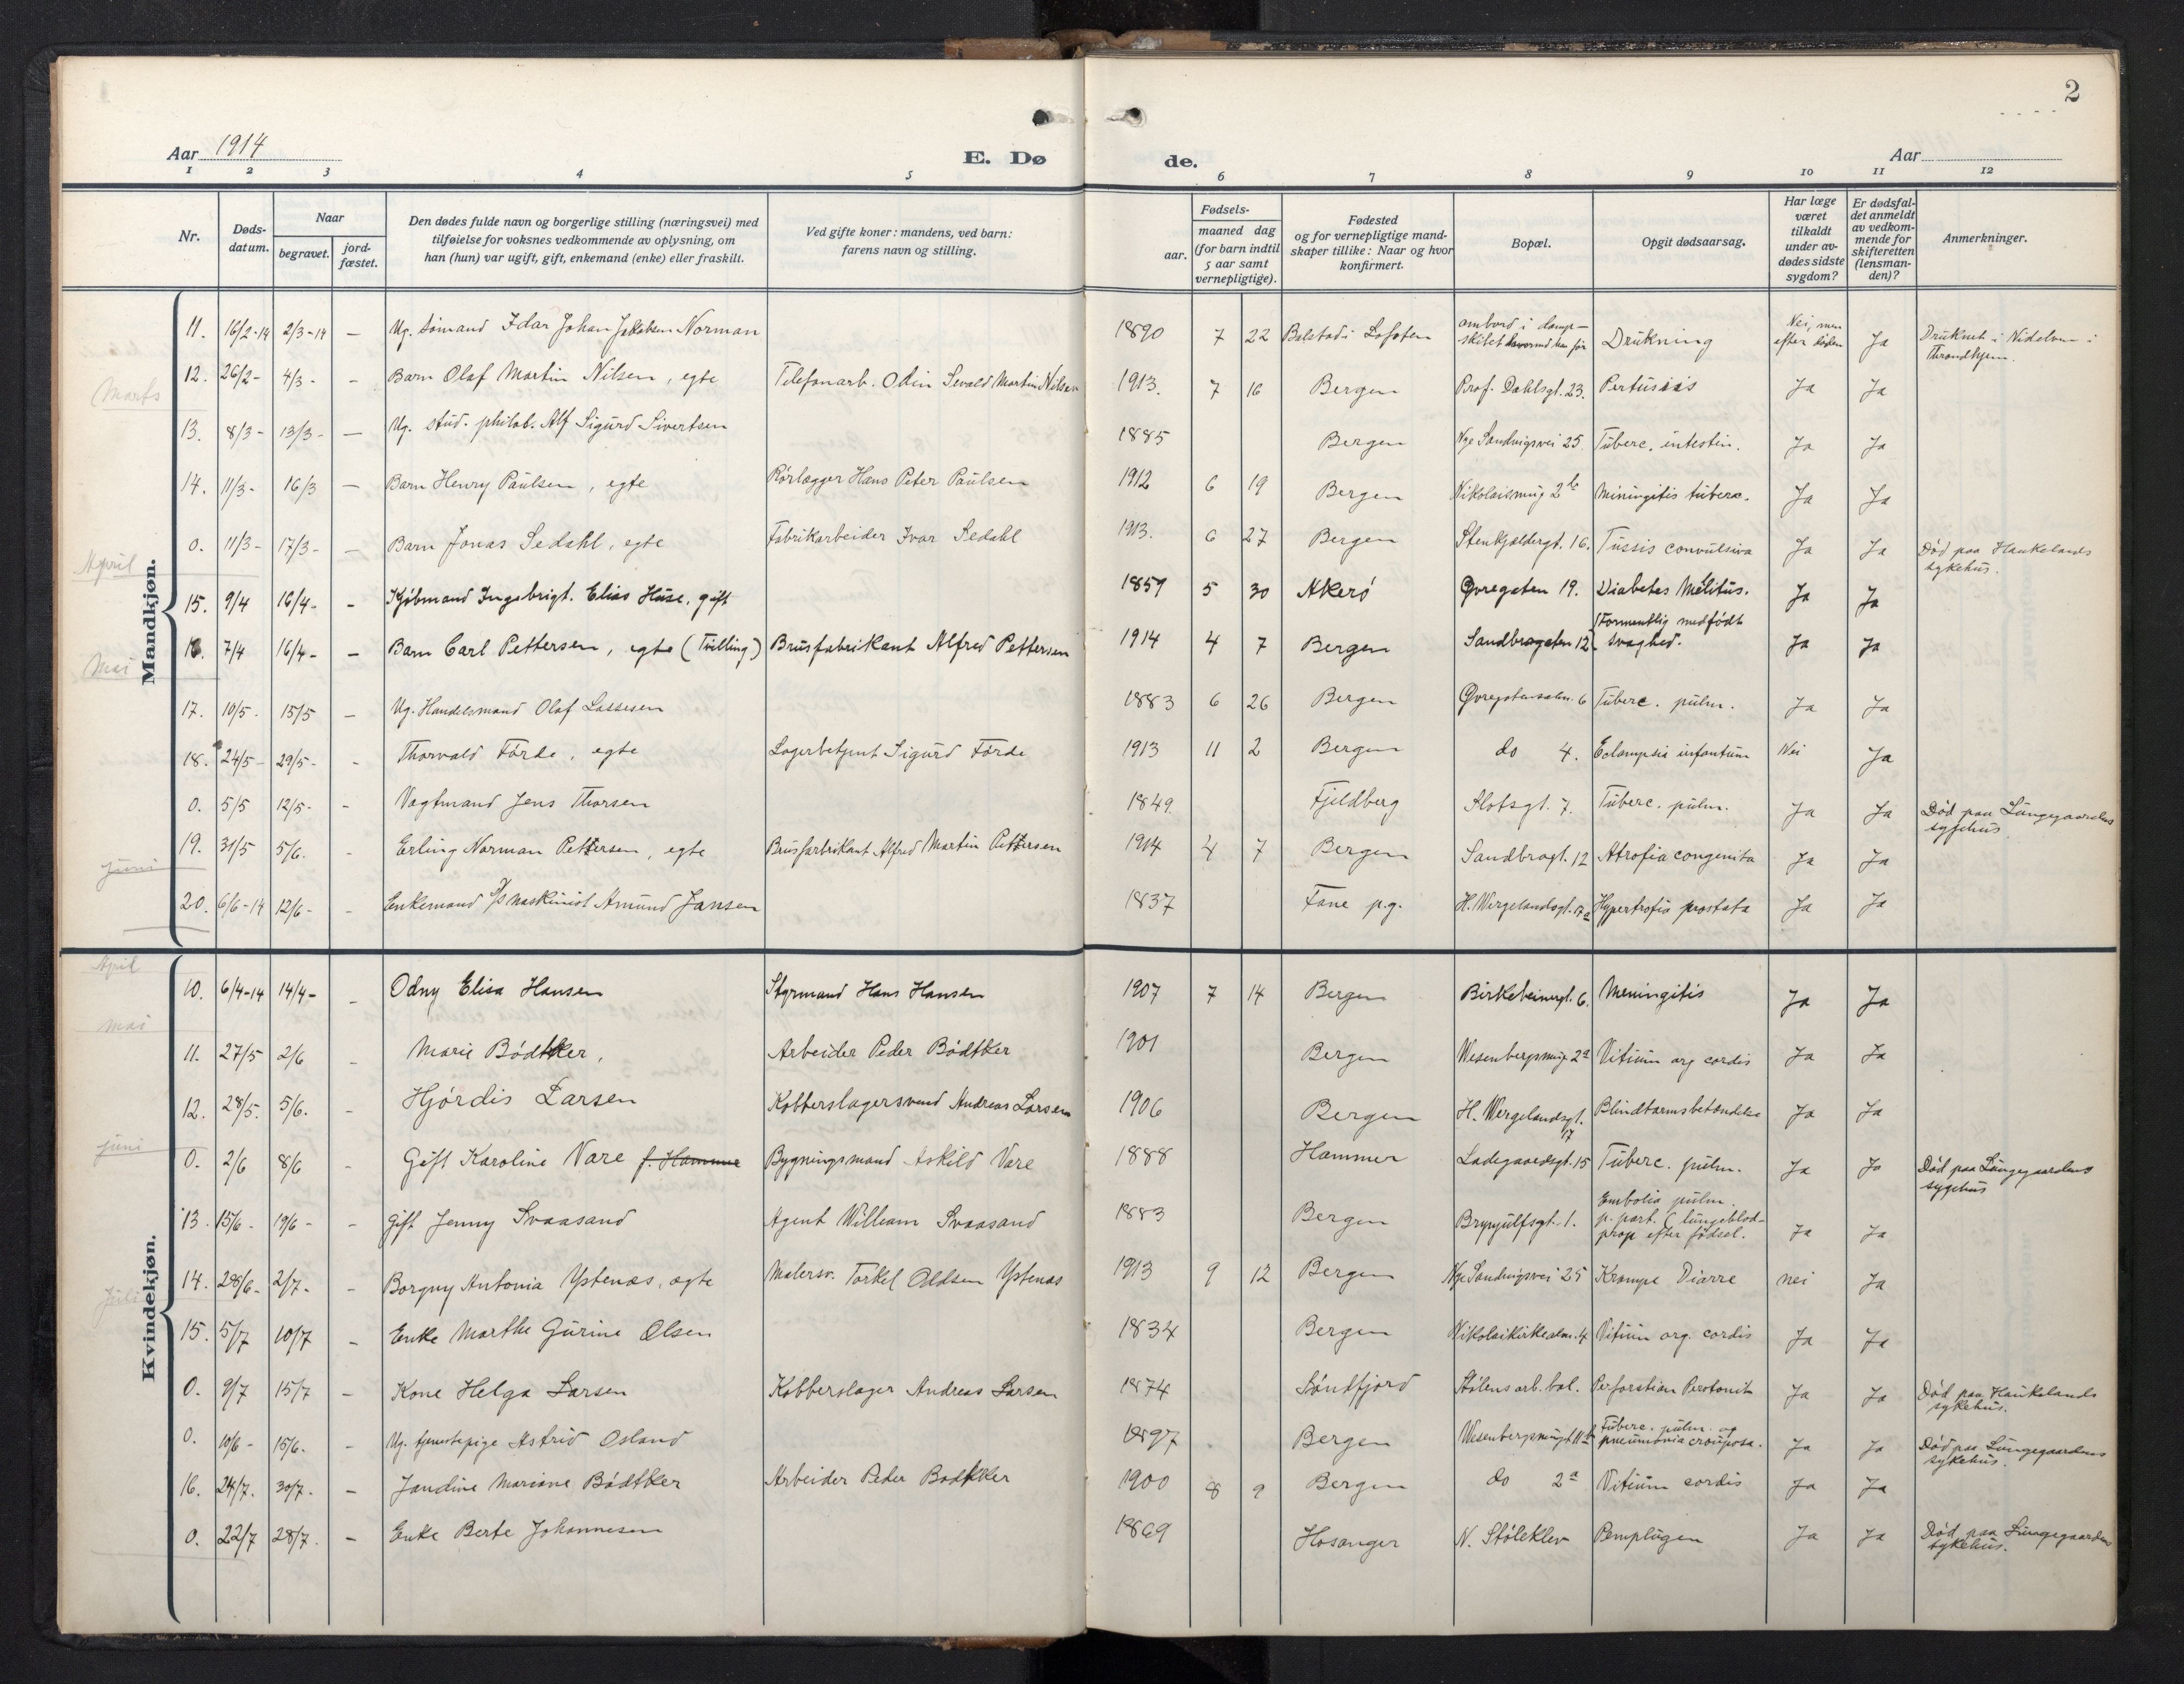 2
Aar 1914
E. Dø
de.
Aar
1 2 3 4 5 6 7 8 9 10 11 12
Nr.
Døds-
datum.
Naar
begravet.
jord-
fæstet.
Den dødes fulde navn og borgerlige stilling (næringsvei) med
tilføielse for voksnes vedkommende av oplysning, om
han (hun) var ugift, gift, enkemand (enke) eller fraskilt.
Ved gifte koner: mandens, ved barn:
farens navn og stilling.
Fødsels-
aar.
maaned dag
(for barn indtil
5 aar samt
vernepligtige).
Fødested
og for vernepligtige mand-
skaper tillike: Naar og hvor
konfirmert.
Bopæl.
Opgit dødsaarsag.
Har læge
været
tilkaldt
under av-
dødes sidste
sygdom?
Er dødsfal-
det anmeldt
av vedkom-
mende for
skifteretten
(lensman-
den)?
Anmerkninger.
Mandkjøn.
11. 16/2-14 2/3-14 — Ug. sømand Idar Johan Jakobsen Norman 1890 7 22 Balstad i Lofoten ombord i damp-
Drukning Nei, men efter døden Ja Druknet i Nidelven i Throndhjem.
12. 26/2- 4/3- - Barn Olaf Martin Nilsen, egte Telefonarb. Odin Sevald Martin Nilsen 1913. 7 16 Bergen Prof. Dahlsgt. 23. Pertussis Ja Ja
Marts
13. 8/3- 13/3- — Ug. stud. philol. Alf Sigurd Sivertsen 1885 Bergen Nye Sandvigsvei 25. Tuberc. intestin. Ja Ja
14. 11/3- 16/3 — Barn Henry Paulsen, egte Rørlægger Hans Peter Paulsen 1912 6 19 Bergen Nikolaismug 2b Miningitis tuberc. Ja Ja
0. 11/3- 17/3- — Barn Jonas Sedahl, egte Fabrikarbeider Ivar Sedahl 1913. 6 27 Bergen Stenkjældergt. 16. Tussis convulsiva Ja Ja Død paa Haukelands sykehus.
April
15. 9/4 16/4- - Kjøbmand Ingebrigt. Elias Huse, gift 1859 5 30 Akerø Øvregaten 19. Diabetes Melitus. Ja Ja
16. 7/4 16/4- - Barn Carl Pettersen, egte (Tvilling) Brusfabrikant Alfred Pettersen 1914 4 7 Bergen Sandbrogaten 12 Formentlig medfødt svaghed. Ja Ja
Mai
17. 10/5. 15/5 — Ug. Handelsmand Olaf Lassesen 1883 6 26 Bergen Øvregatensalm. 6 Tuberc. pulm. Ja Ja
18. 24/5- 29/5- - Thorvald Førde, egte Lagerbetjent Sigurd Førde 1913 11 2 Bergen do 4. Eclampsia infantum Nei Ja
0. 5/5 12/5- - Vagtmand Jens Thorsen 1849. Fjeldberg Slotsgt. 7. Tuberc. pulm. Ja Ja Død paa Lungegaardens sygehus
19. 31/5 5/6. - Erling Norman Pettersen, egte Brusfarbrikant Alfred Martin Pettersen 1914 4 7 Bergen Sandbrogt. 12 Atrofia congenita Ja Ja
Juni
20. 6/6-14 12/6- - Enkemand Maskinist Amund Jansen 1837 Fane p.g. H. Wergelandsgt. 17a Hypertrofia prostata Ja Ja
Kvindekjøn.
April
10. 6/4-14 14/4- - Odny Elisa Hansen Styrmand Hans Hansen 1907 7 14 Bergen Birkebeinergt. 6. Meningitis Ja Ja
Mai
11. 27/5 2/6 - Marie Bødtker, Arbeider Peder Bødtker 1901 Bergen Wesenbergsmug 2a Vitium org cordis Ja Ja
12. 28/5. 5/6. - Hjørdis Larsen Kobberslagersvend Andreas Larsen 1906 Bergen H. Wergelandsgt. 17 Blindtarmsbetændelse Ja Ja
Juni
0. 2/6 8/6 - Gift Karoline Vare f. Hammer Bygningsmand Askild Vare 1888 Hammer Ladegaardsgt. 15 Tuberc. pulm. Ja Ja Død paa Lungegaardens sygehus
13. 15/6- 19/6- - Gift Jenny Svaasand Agent William Svaasand 1883 Bergen Brynjulfsgt. 1. Embolia pulm. p. part. (lungeblod-
prop efter fødsel. Ja Ja
14. 28/6- 2/7- - Borgny Antonia Ystenæs, ægte Malersv. Torkel Oldsen Ystenæs 1913 9 12 Bergen Nye Sandvigsvei 25 Krampe Diarre nei Ja
Juli
15. 5/7 10/7 - Enke Marthe Gurine Olsen 1834 Bergen Nikolaikirkealm. 4 Vitium org. cordis Ja Ja
0. 9/7 15/7 - Kone Helga Larsen Kobberslager Andreas Larsen 1874 Søndfjord Stølens arb. bol. Perforation Peretonit Ja Ja Død paa Haukelands sykehus.
0. 10/6- 15/6. - Ug. tjenestepige Astrid Osland 1897 Bergen Wesenbergsmug 11b Tuberc. pulm. og pneumonia crouposa. Ja Ja Død paa Lungegaardens sykehus.
16. 24/7. 30/7. - Jandine Mariane Bødtker Arbeider Peder Bødtker 1900 8 9 Bergen do 2a Vitium cordis Ja Ja
0. 22/7 28/7. - Enke Berte Johannesen 1869 Hosanger N. Stølekleven Pemphigen Ja Ja Død paa Lungegaardens sykehus.